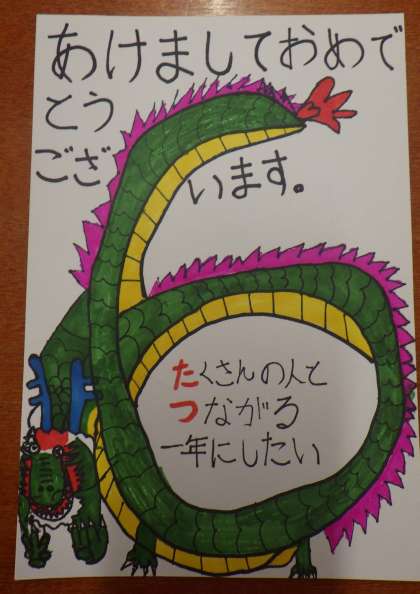 あけましておめで
とう
ござ
います。
たくさんの人と
つながる
一年にしたい